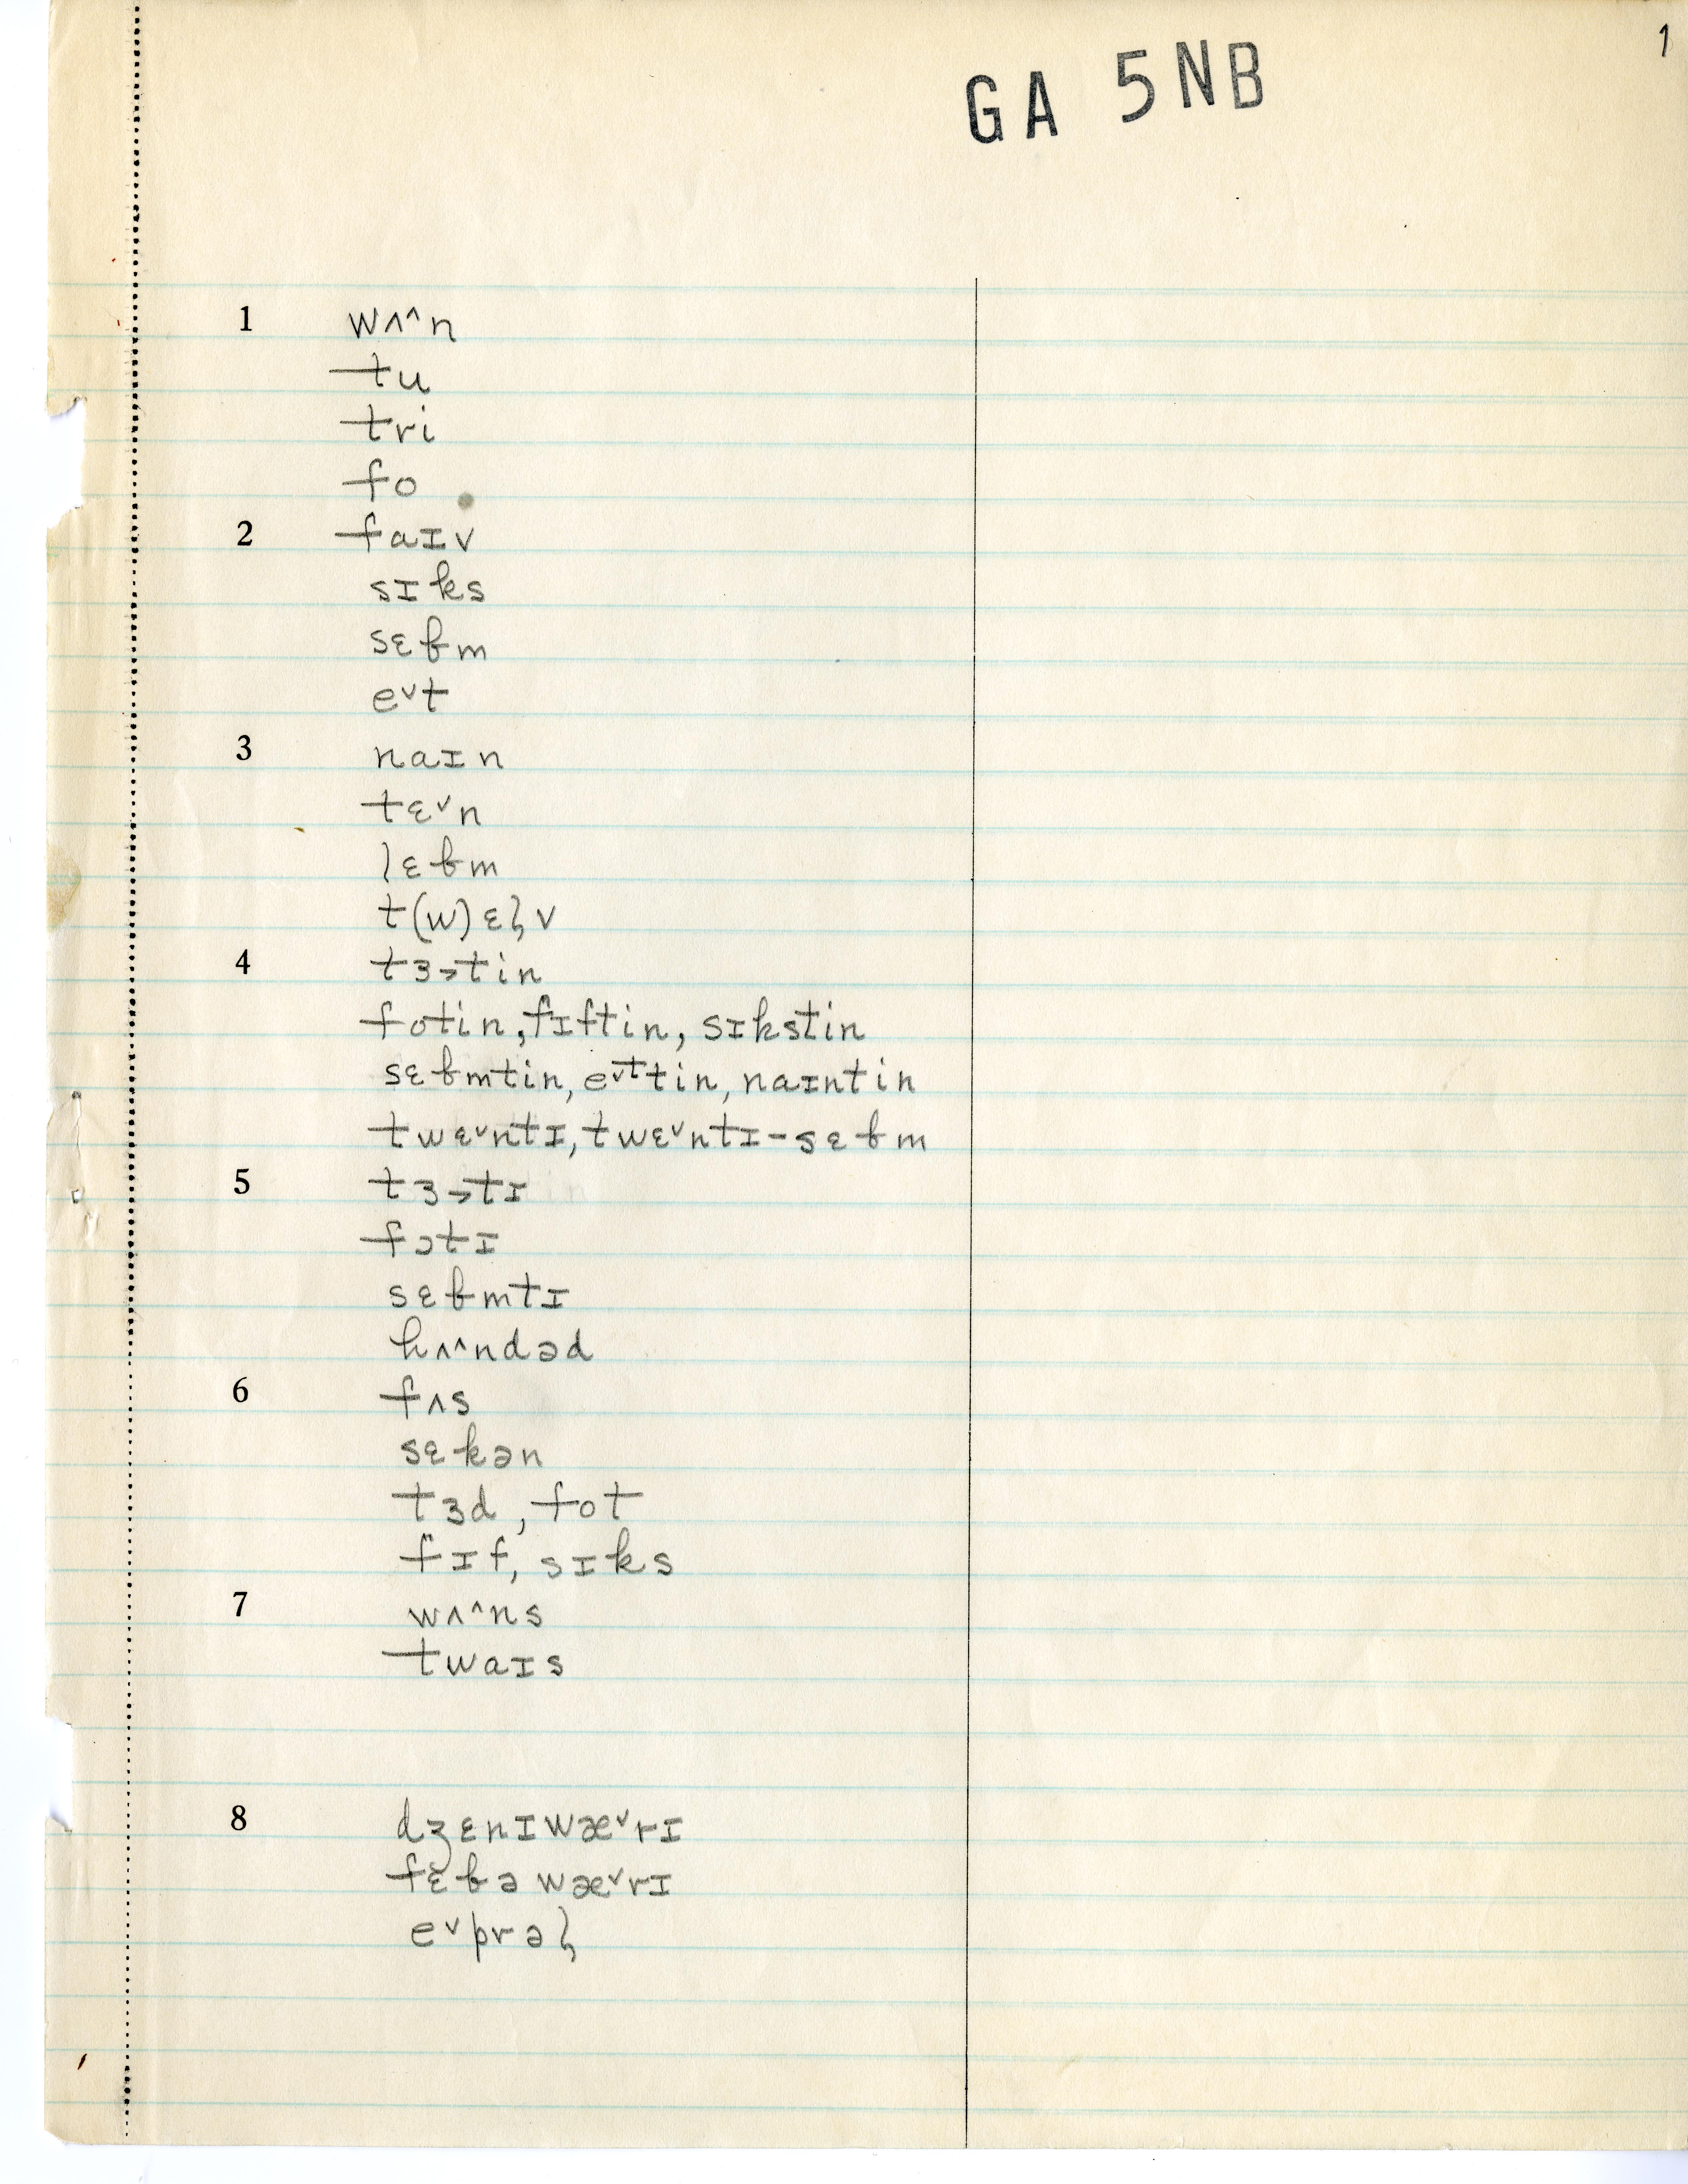 1
GA 5NB
1 wʌ^n
tu
tri
fo
2 faɪv
sɪks
sɛƀm
eᵛt
3 naɪn
tɛᵛn
lɛƀm
t(w)ɛɫv
4 tɜ˃tin
fotin, fɪftin, sɪkstin
sɛƀmtin, eᵛᵗtin, naɪntin
twɛᵛntɪ, twɛᵛntɪ-sɛƀm
5 tɜ˃tɪ
fɔtɪ
sɛƀmtɪ
hʌ^ndəd
6 fʌs
sɛkən
tɜd, fot
fɪf, sɪks
7 wʌ^ns
twaɪs
8 dʒɛnɪwæᵛrɪ
fɛƀəwæᵛrɪ
eᵛprəɫ